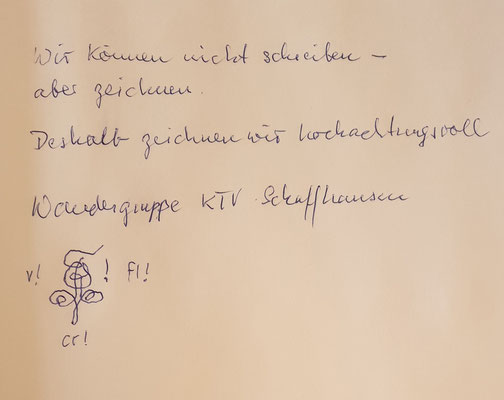 Wir können nicht schreiben –
aber zeichnen.
Deshalb zeichnen wir hochachtungsvoll
Wandergruppe KTV Schaffhausen
v! ! fl!
cr!